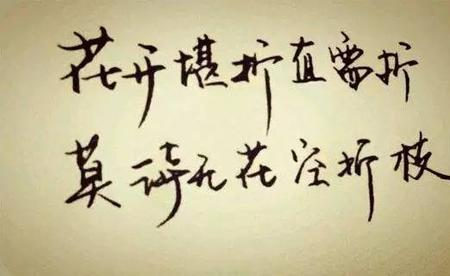 花开堪折直需折
莫待无花空折枝